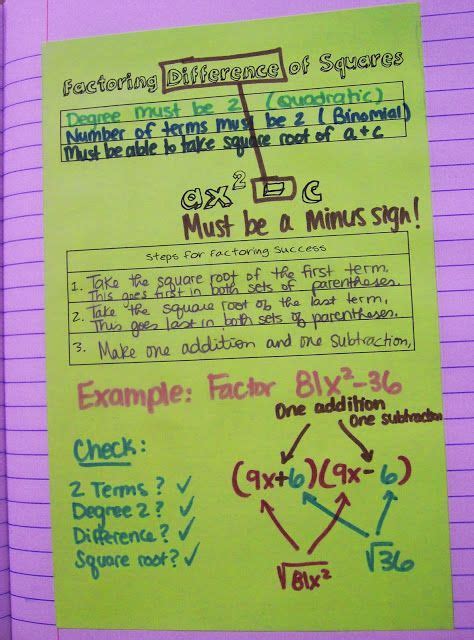 Factoring Difference of Squares
Degree must be 2 (Quadratic)
Number of terms must be 2 (Binomial)
Must be able to take square root of a + c
ax² - c
Must be a minus sign!
Steps for Factoring Success
1. Take the square root of the first term.
This goes first in both sets of parentheses.
2. Take the square root of the last term,
This goes last in both sets of parentheses.
3. Make one addition and one subtraction,
Example: Factor 81x²-36
One addition
One subtraction
Check:
(9x+6)(9x-6)
2 Terms? ✓
Degree 2? ✓
Difference? ✓
Square root? ✓
√81x²
√36